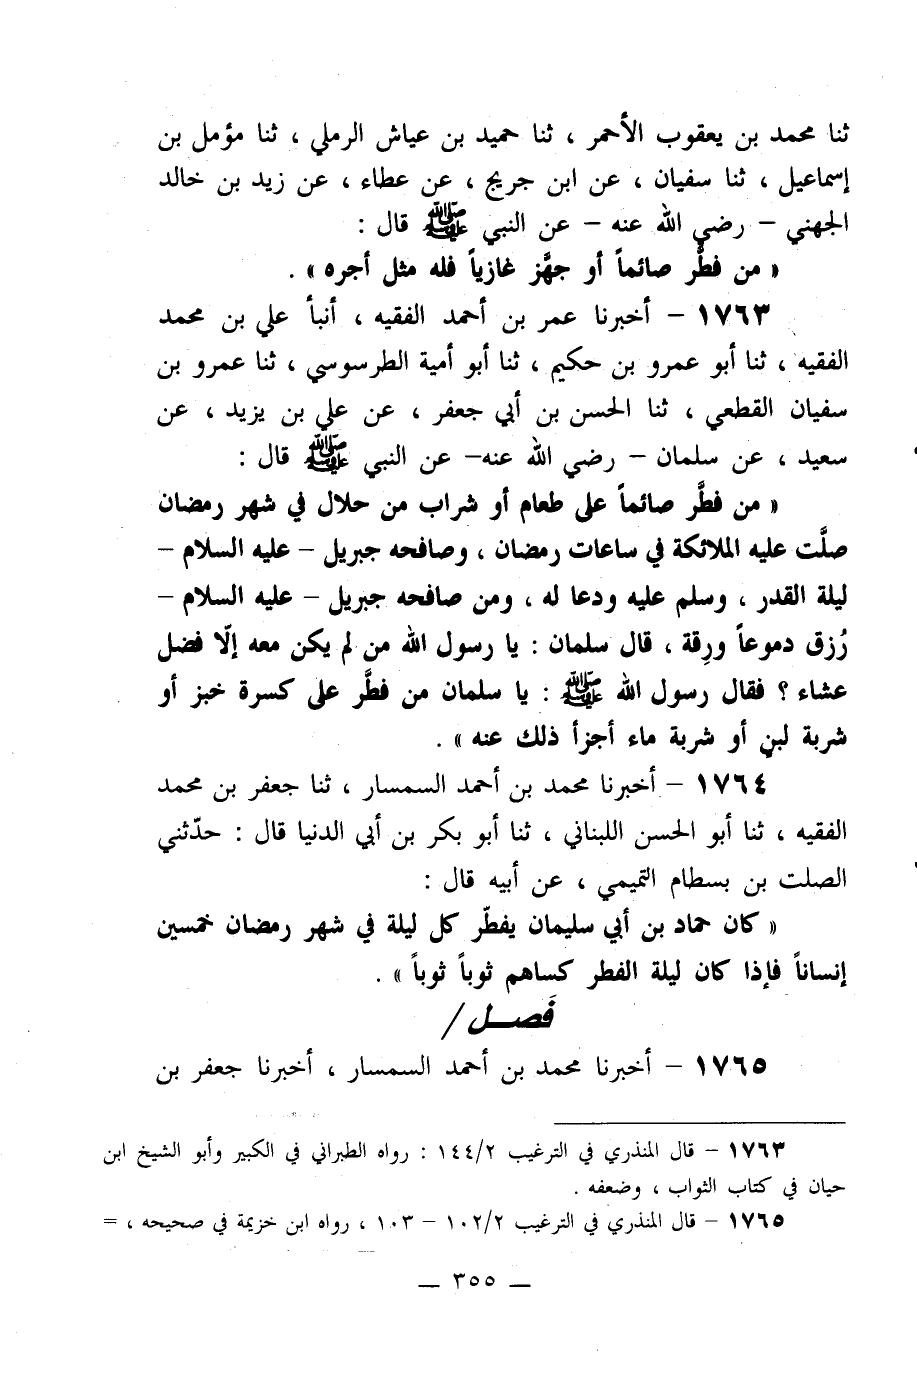 ثنا محمد بن يعقوب الأحمر ، ثنا حميد بن عياش الرملي ، ثنا مؤمل بن
إسماعيل ، ثنا سفيان ، عن ابن جريج ، عن عطاء ، عن زيد بن خالد
الجهني – رضي الله عنه – عن النبي ﷺ قال :
« من فطَّر صائماً أو جهَّز غازياً فله مثل أجره » .
١٧٦٣ – أخبرنا عمر بن أحمد الفقيه ، أنبأ علي بن محمد
الفقيه ، ثنا أبو عمرو بن حكيم ، ثنا أبو أمية الطرسوسي ، ثنا عمرو بن
سفيان القطعي ، ثنا الحسن بن أبي جعفر ، عن علي بن يزيد ، عن
سعيد ، عن سلمان – رضي الله عنه– عن النبي ﷺ قال :
« من فطَّر صائماً على طعام أو شراب من حلال في شهر رمضان
صلَّت عليه الملائكة في ساعات رمضان ، وصافحه جبريل – عليه السلام –
ليلة القدر ، وسلم عليه ودعا له ، ومن صافحه جبريل – عليه السلام –
رُزق دموعاً ورِقة ، قال سلمان : يا رسول الله من لم يكن معه إلّا فضل
عشاء ؟ فقال رسول الله ﷺ : يا سلمان من فطَّر على كسرة خبز أو
شربة لبنٍ أو شربة ماء أجزأ ذلك عنه » .
١٧٦٤ – أخبرنا محمد بن أحمد السمسار ، ثنا جعفر بن محمد
الفقيه ، ثنا أبو الحسن اللبناني ، ثنا أبو بكر بن أبي الدنيا قال : حدّثني
الصلت بن بسطام التميمي ، عن أبيه قال :
« كان حماد بن أبي سليمان يفطّر كل ليلة في شهر رمضان خمسين
إنساناً فإذا كان ليلة الفطر كساهم ثوباً ثوباً » .
فَصـــل /
١٧٦٥ – أخبرنا محمد بن أحمد السمسار ، أخبرنا جعفر بن
١٧٦٣ – قال المنذري في الترغيب ١٤٤/٢ : رواه الطبراني في الكبير وأبو الشيخ ابن
حيان في كتاب الثواب ، وضعفه .
١٧٦٥ – قال المنذري في الترغيب ١٠٢/٢ – ١٠٣ ، رواه ابن خزيمة في صحيحه ، =
— ٣٥٥ —